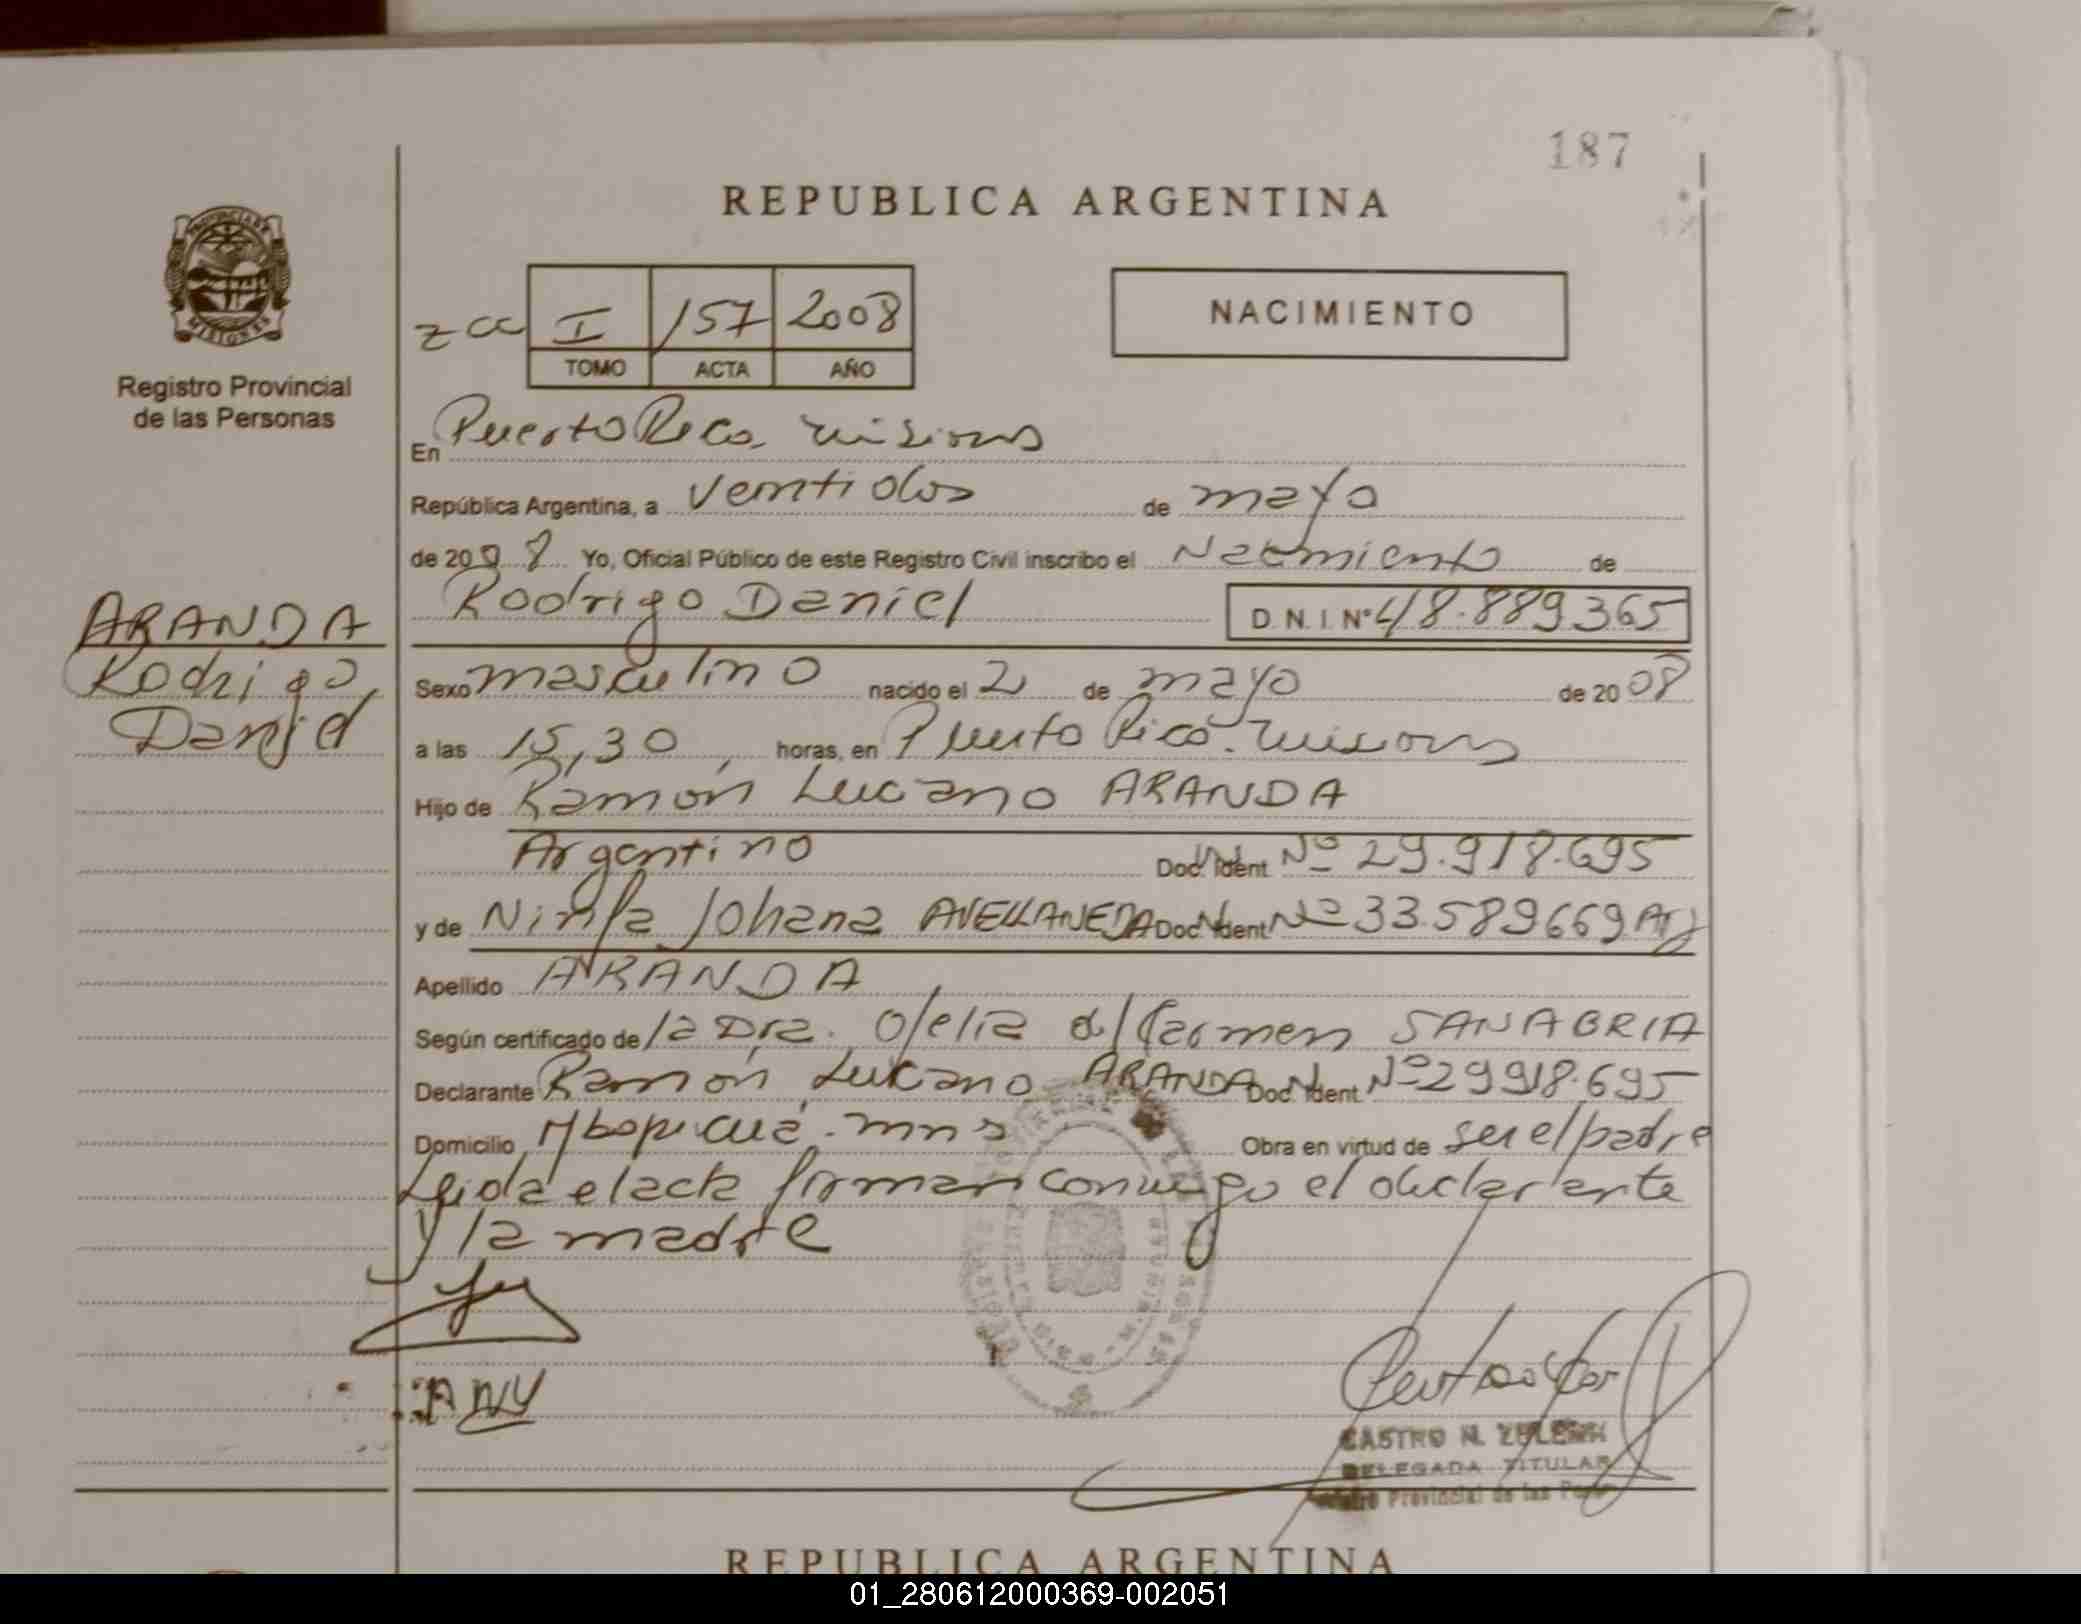 187
REPUBLICA ARGENTINA
PROVINCIA DE
MISIONES
Registro Provincial
de las Personas
zcc I 157 2008
TOMO ACTA AÑO
NACIMIENTO
En Puerto Rico, misiones
República Argentina, a veintidos de mayo
de 2008 Yo, Oficial Público de este Registro Civil inscribo el Nacimiento de
Rodrigo Daniel D.N.I. Nº 48.889365
ARANDA
Rodrigo
Daniel
Sexo masculino nacido el 2 de mayo de 2008
a las 15,30, horas, en Puerto Rico. misiones
Hijo de Ramón Luciano ARANDA
Argentino Doc. Ident Nº 29.918.695
y de Ninfa Johana AVELLANEDA Doc. Ident Nº 33.589669 Arg
Apellido ARANDA
Según certificado de la Dra. Ofelia del Carmen SANABRIA
Declarante Ramón Luciano ARANDA Doc. Ident Nº 29918.695
Domicilio Mbopicuá. mns Obra en virtud de ser el padre
Leida el acta firman conmigo el declarante
y la madre
CASTRO N. ZULEMA
DELEGADA TITULAR
Provincial de las
REPUBLICA ARGENTINA
01_280612000369-002051